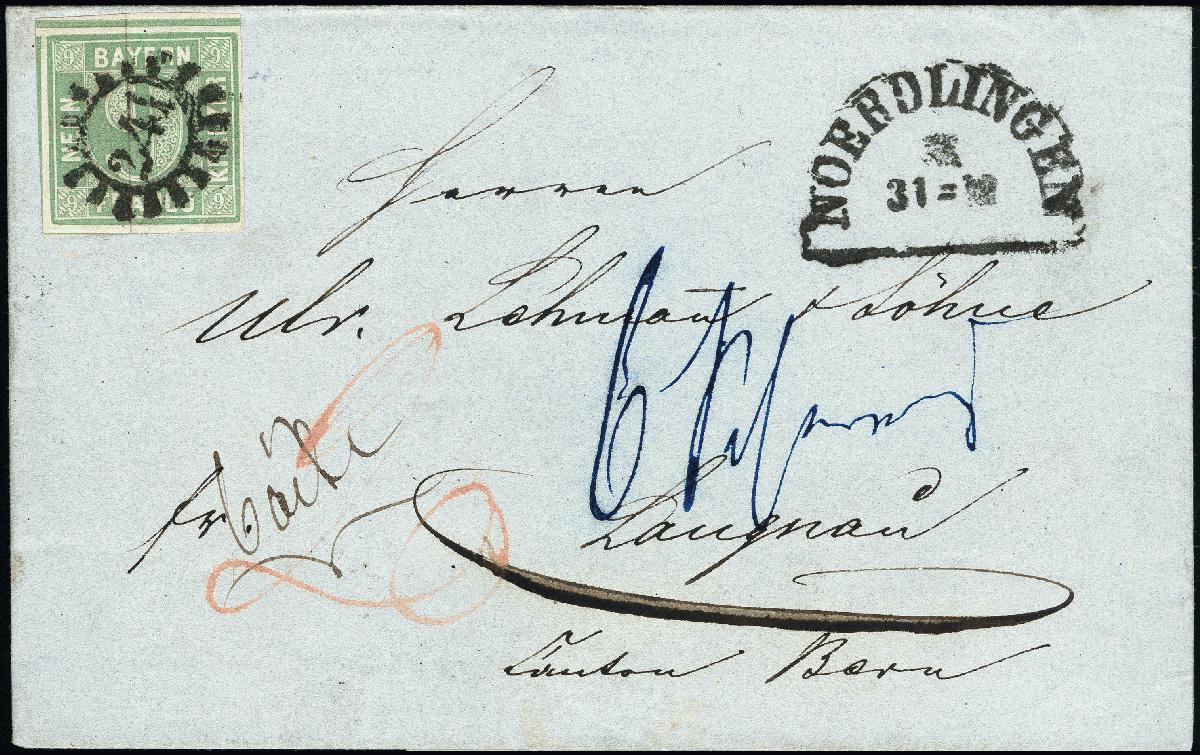 9 BAYERN 9
NEUN
KREUZER
9 9
241
NOERDLINGEN
31
Herren
Ulr. Lehmann & Söhne
fr
6
20
Langnau
Canton Bern